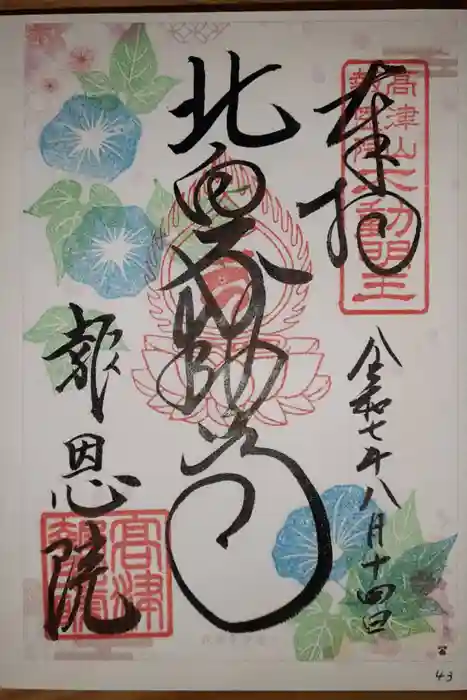 奉拝
高津山
報恩院
不動明王
令和七年八月十四日
北向不動尊
報恩院
高津
43